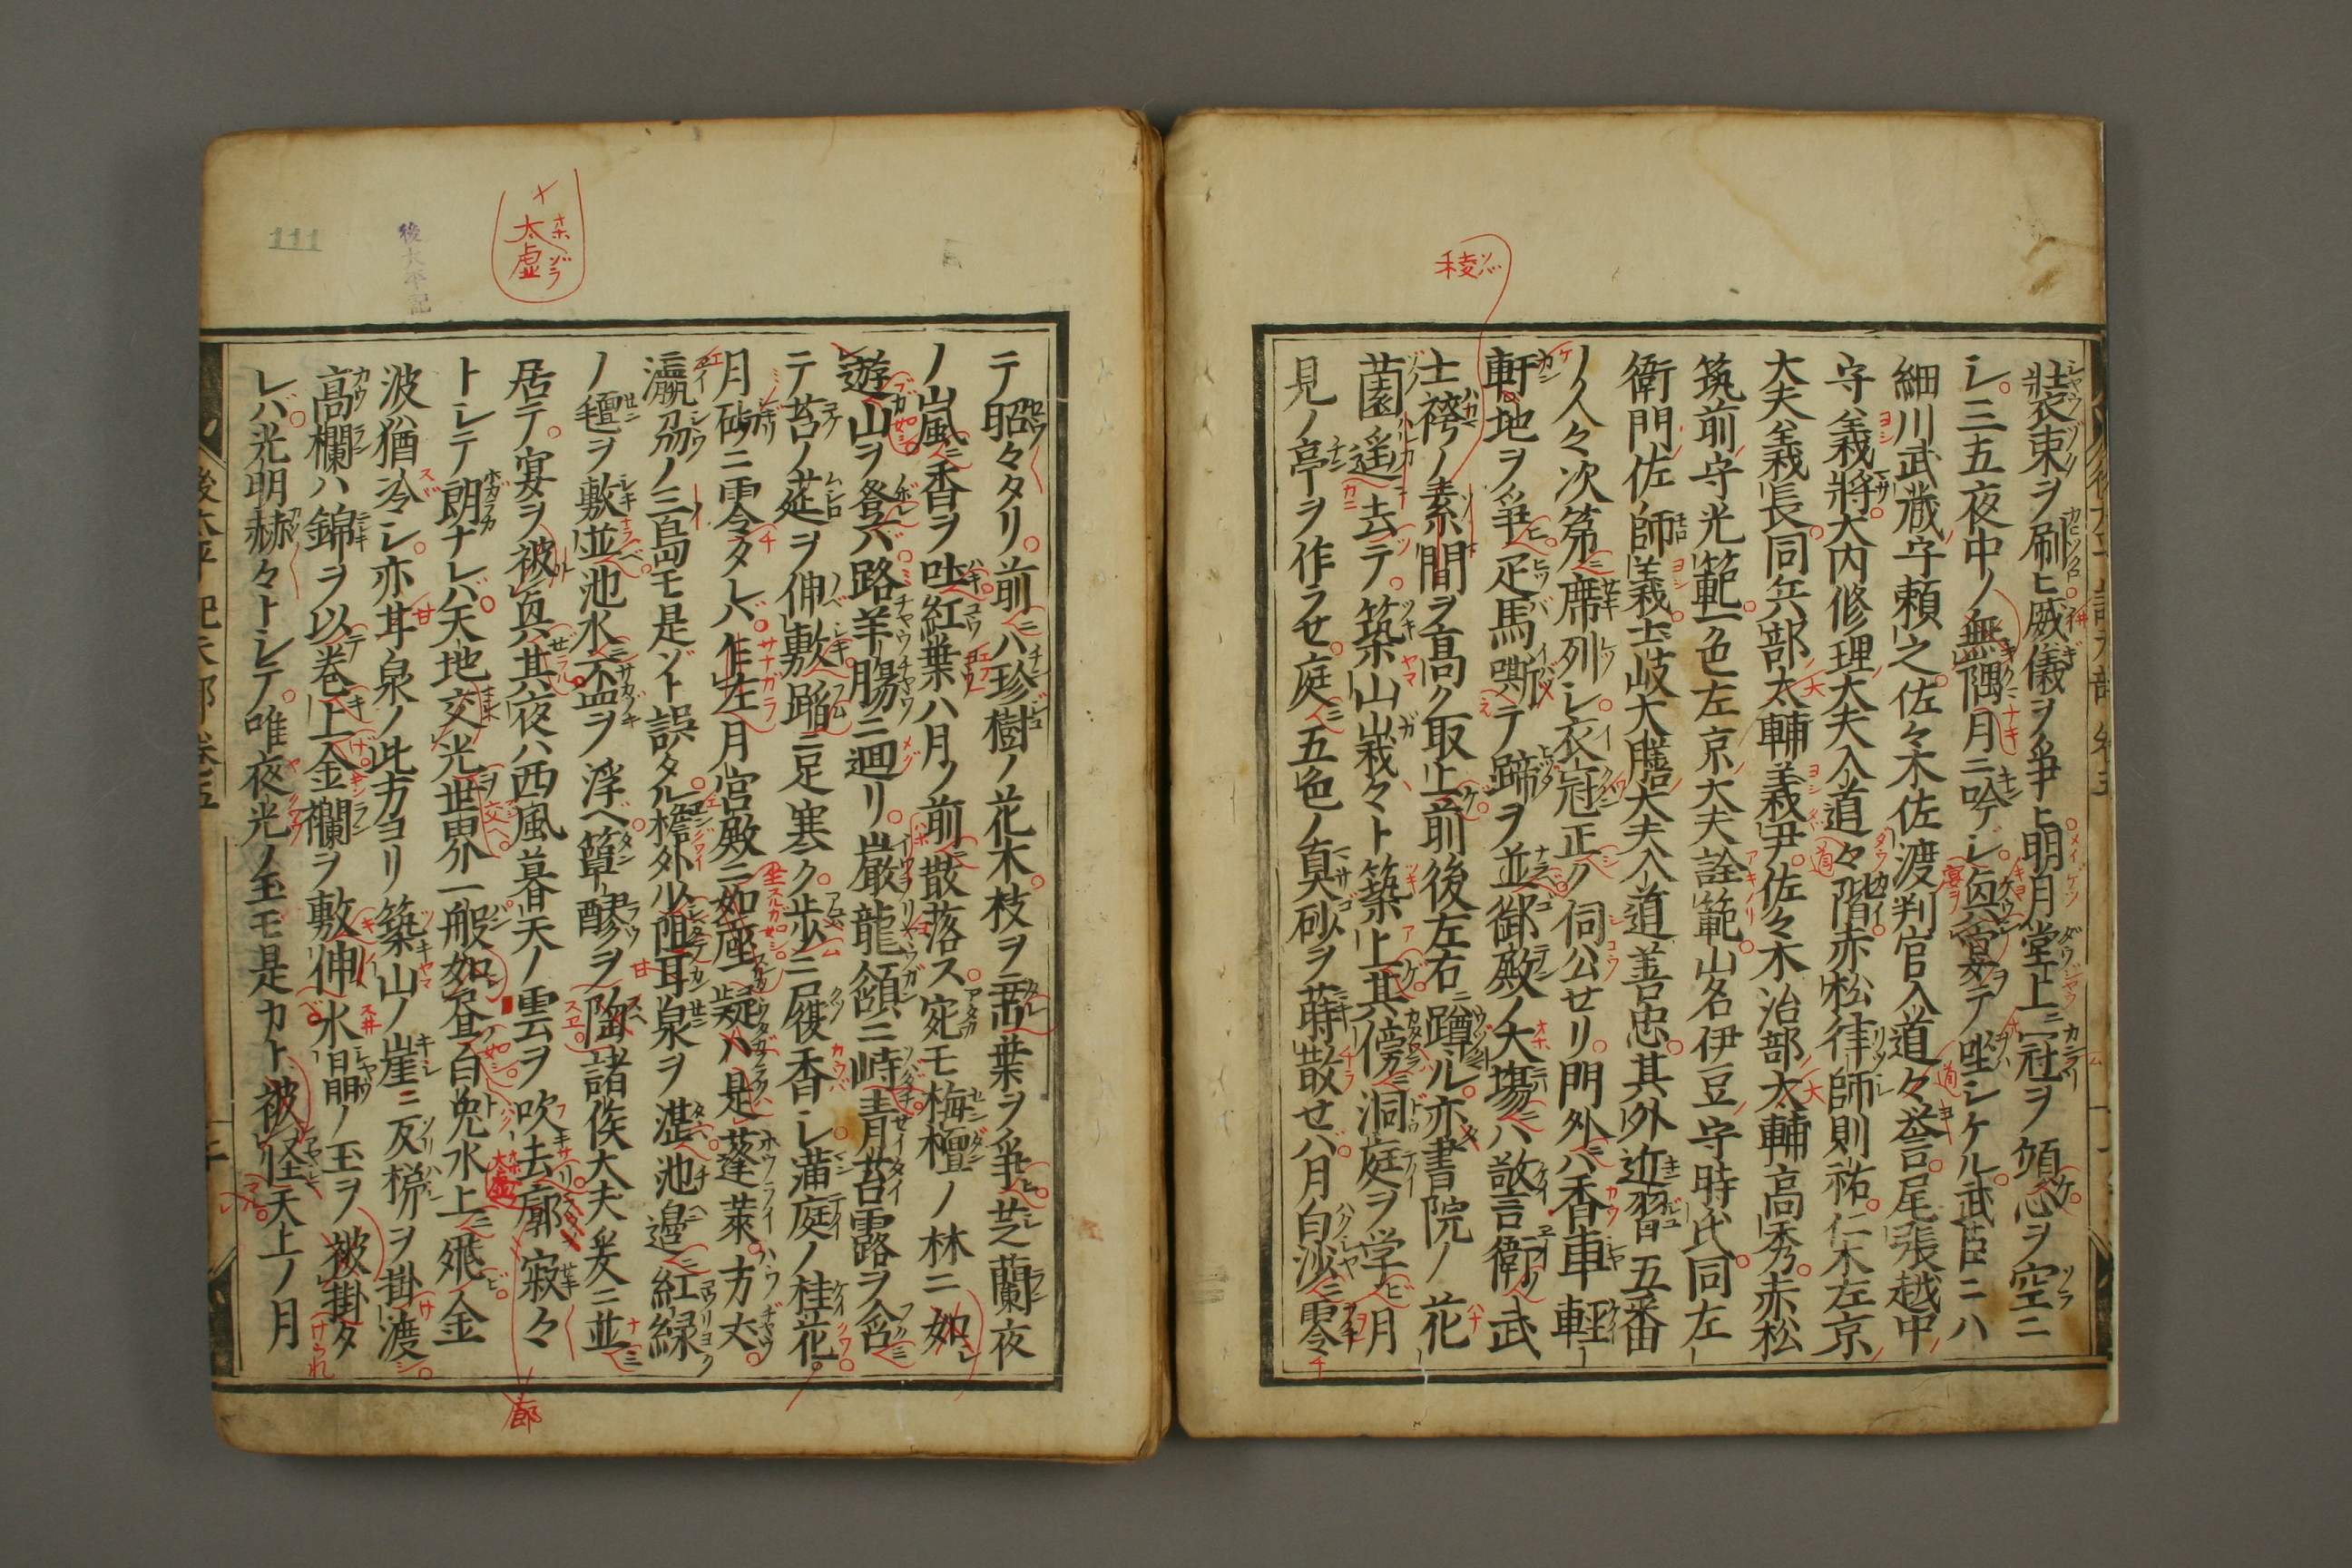 裝束ヲ刷ヒ威儀ヲ爭ヒ明月堂上ニ冠ヲ傾ケ心ヲ空ニ
シ三五夜中ノ無隅月ニ吟テシ興宴テノ坐シケル武臣ニハ
細川武藏守頼之佐々木佐渡判官入道々誉尾張越中
守義將大内修理大夫入道々階赤松律師則祐仁木左京
大夫義長同兵部太輔義尹佐々木治部太輔高秀赤松
筑前守光範一色左京大夫詮範山名伊豆守時氏同左
衛門佐師義土岐大膳大夫入道善忠其外近習五番
ノ人々次第ニ席列シ衣冠正ク伺公セリ門外ニハ香車軽
軒地ヲ爭ヒ疋馬嘶テ蹄ヲ並御殿ノ大場ニハ警衛ノ武
士袴ノ素間ヲ高ク取上前後左右ニ蹲ル亦書院ノ花
園遥去テ築山峩々ト築上其傍ニ洞庭ヲ学ビ月
見ノ亭ヲ作ラセ庭ニ五色ノ真砂ヲ蒔散セバ月白沙ニ零
稜ソバ
テ昭々タリ前ニハ珍樹ノ花木枝ヲ垂葉ヲ爭芝蘭夜
ノ嵐ニ香ヲ吐紅葉ハ月ノ前ニ散落ス宛モ梅檀ノ林ニ如
遊山ヲ登バ六路羊腸ニ廻リ巌龍頷ニ峙青苔露ヲ含
テ苔ノ莚ヲ伸敷蹈ニ足寒ク歩ニ屧香シ蒲庭ノ桂花
月砌ニ零タレバ乍左月宮殿ニ如座疑ハ是蓬萊方丈
瀛洲ノ三島モ是ゾト誤タル檐外少阻耳泉ヲ湛池邉ニ紅緑
ノ氈ヲ敷並池水ニ盃ヲ浮ベ簞醪ヲ陶諸侯大夫爰ニ並
居テ宴ヲ被興其夜ハ西風暮天ノ雲ヲ吹去廓寂々
トシテ朗ナレバ天地交光世界一般如昼百兎水上ニ飛金
波猶冷シ亦耳泉ノ此方ヨリ築山ノ崖ニ反梯ヲ掛渡
高欄ハ錦ヲ以巻上金襴ヲ敷伸水晶ノ玉ヲ被掛タ
レバ光明赫々トシテ唯夜光ノ玉モ是カト被怪天上ノ月
太虚
ヲホゾラ
廓
後太平記
111